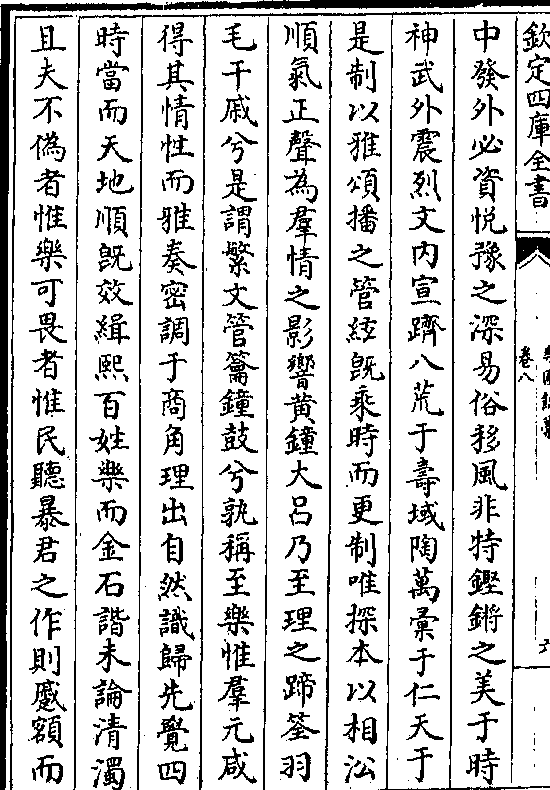 欽定四庫全書
卷八
中發外必資悦豫之深易俗移風非特鏗鏘之美于時
神武外震烈文内宣躋八荒于壽域陶萬彚于仁天于
是制以雅頌播之管絃既乘時而更制唯探本以相沿
順氣正聲為羣情之影響黄鐘大吕乃至理之蹄筌羽
毛干戚兮是謂繁文管籥鐘鼓兮孰稱至樂惟羣元咸
得其情性而雅奏密調于商角理出自然識歸先覺四
時當而天地順既效緝熙百姓樂而金石諧未論清濁
且夫不偽者惟樂可畏者惟民聽暴君之作則蹙額而